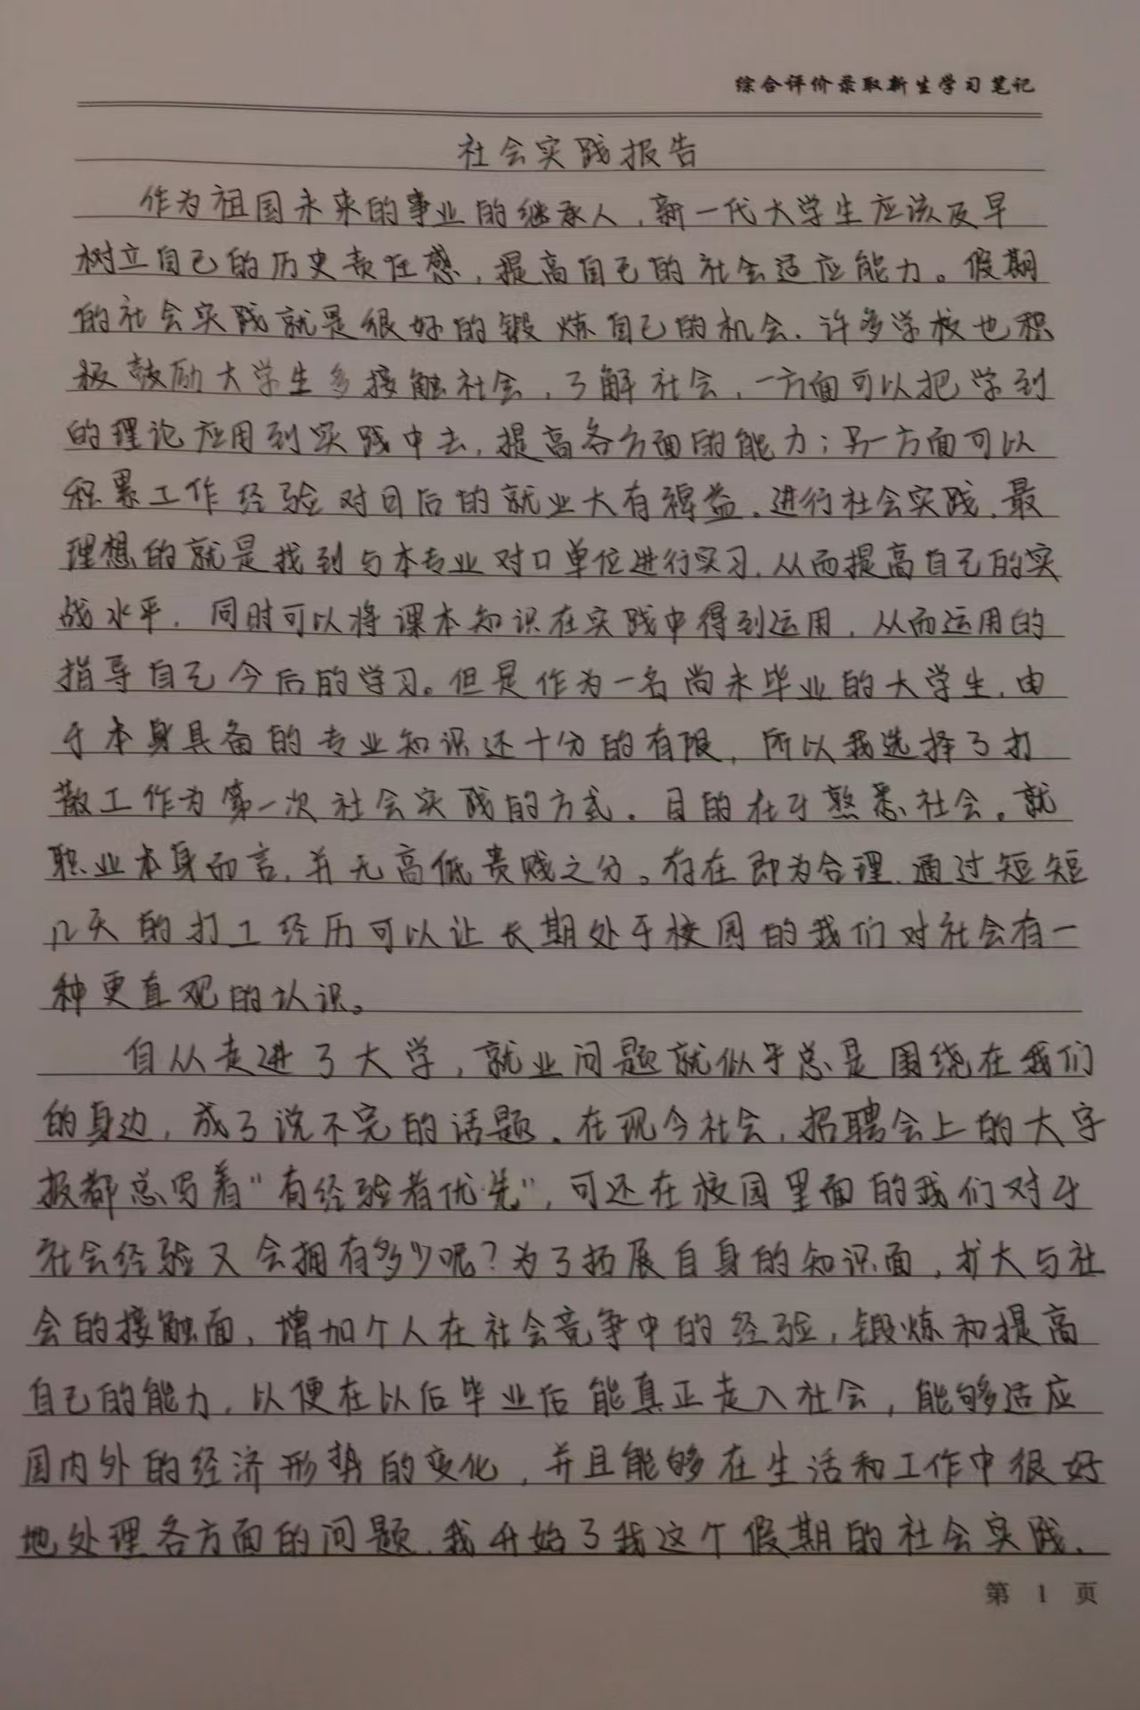 综合评价录取新生学习笔记
社会实践报告
作为祖国未来的事业的继承人，新一代大学生应该及早
树立自己的历史责任感，提高自己的社会适应能力。假期
的社会实践就是很好的锻炼自己的机会．许多学校也积
极鼓励大学生多接触社会，了解社会，一方面可以把学到
的理论应用到实践中去，提高各方面的能力；另一方面可以
积累工作经验对日后的就业大有裨益．进行社会实践，最
理想的就是找到与本专业对口单位进行实习，从而提高自己的实
战水平，同时可以将课本知识在实践中得到运用，从而运用的
指导自己今后的学习。但是作为一名尚未毕业的大学生，由
于本身具备的专业知识还十分的有限，所以我选择了打
散工作为第一次社会实践的方式。目的在于熟悉社会。就
职业本身而言，并无高低贵贱之分。存在即为合理，通过短短
几天的打工经历可以让长期处于校园的我们对社会有一
种更直观的认识。
自从走进了大学，就业问题就似乎总是围绕在我们
的身边，成了说不完的话题。在现今社会，招聘会上的大字
报都总写着“有经验者优先”，可还在校园里面的我们对于
社会经验又会拥有多少呢？为了拓展自身的知识面，扩大与社
会的接触面，增加个人在社会竞争中的经验，锻炼和提高
自己的能力，以便在以后毕业后能真正走入社会，能够适应
国内外的经济形势的变化，并且能够在生活和工作中很好
地处理各方面的问题，我开始了我这个假期的社会实践．
第 1 页